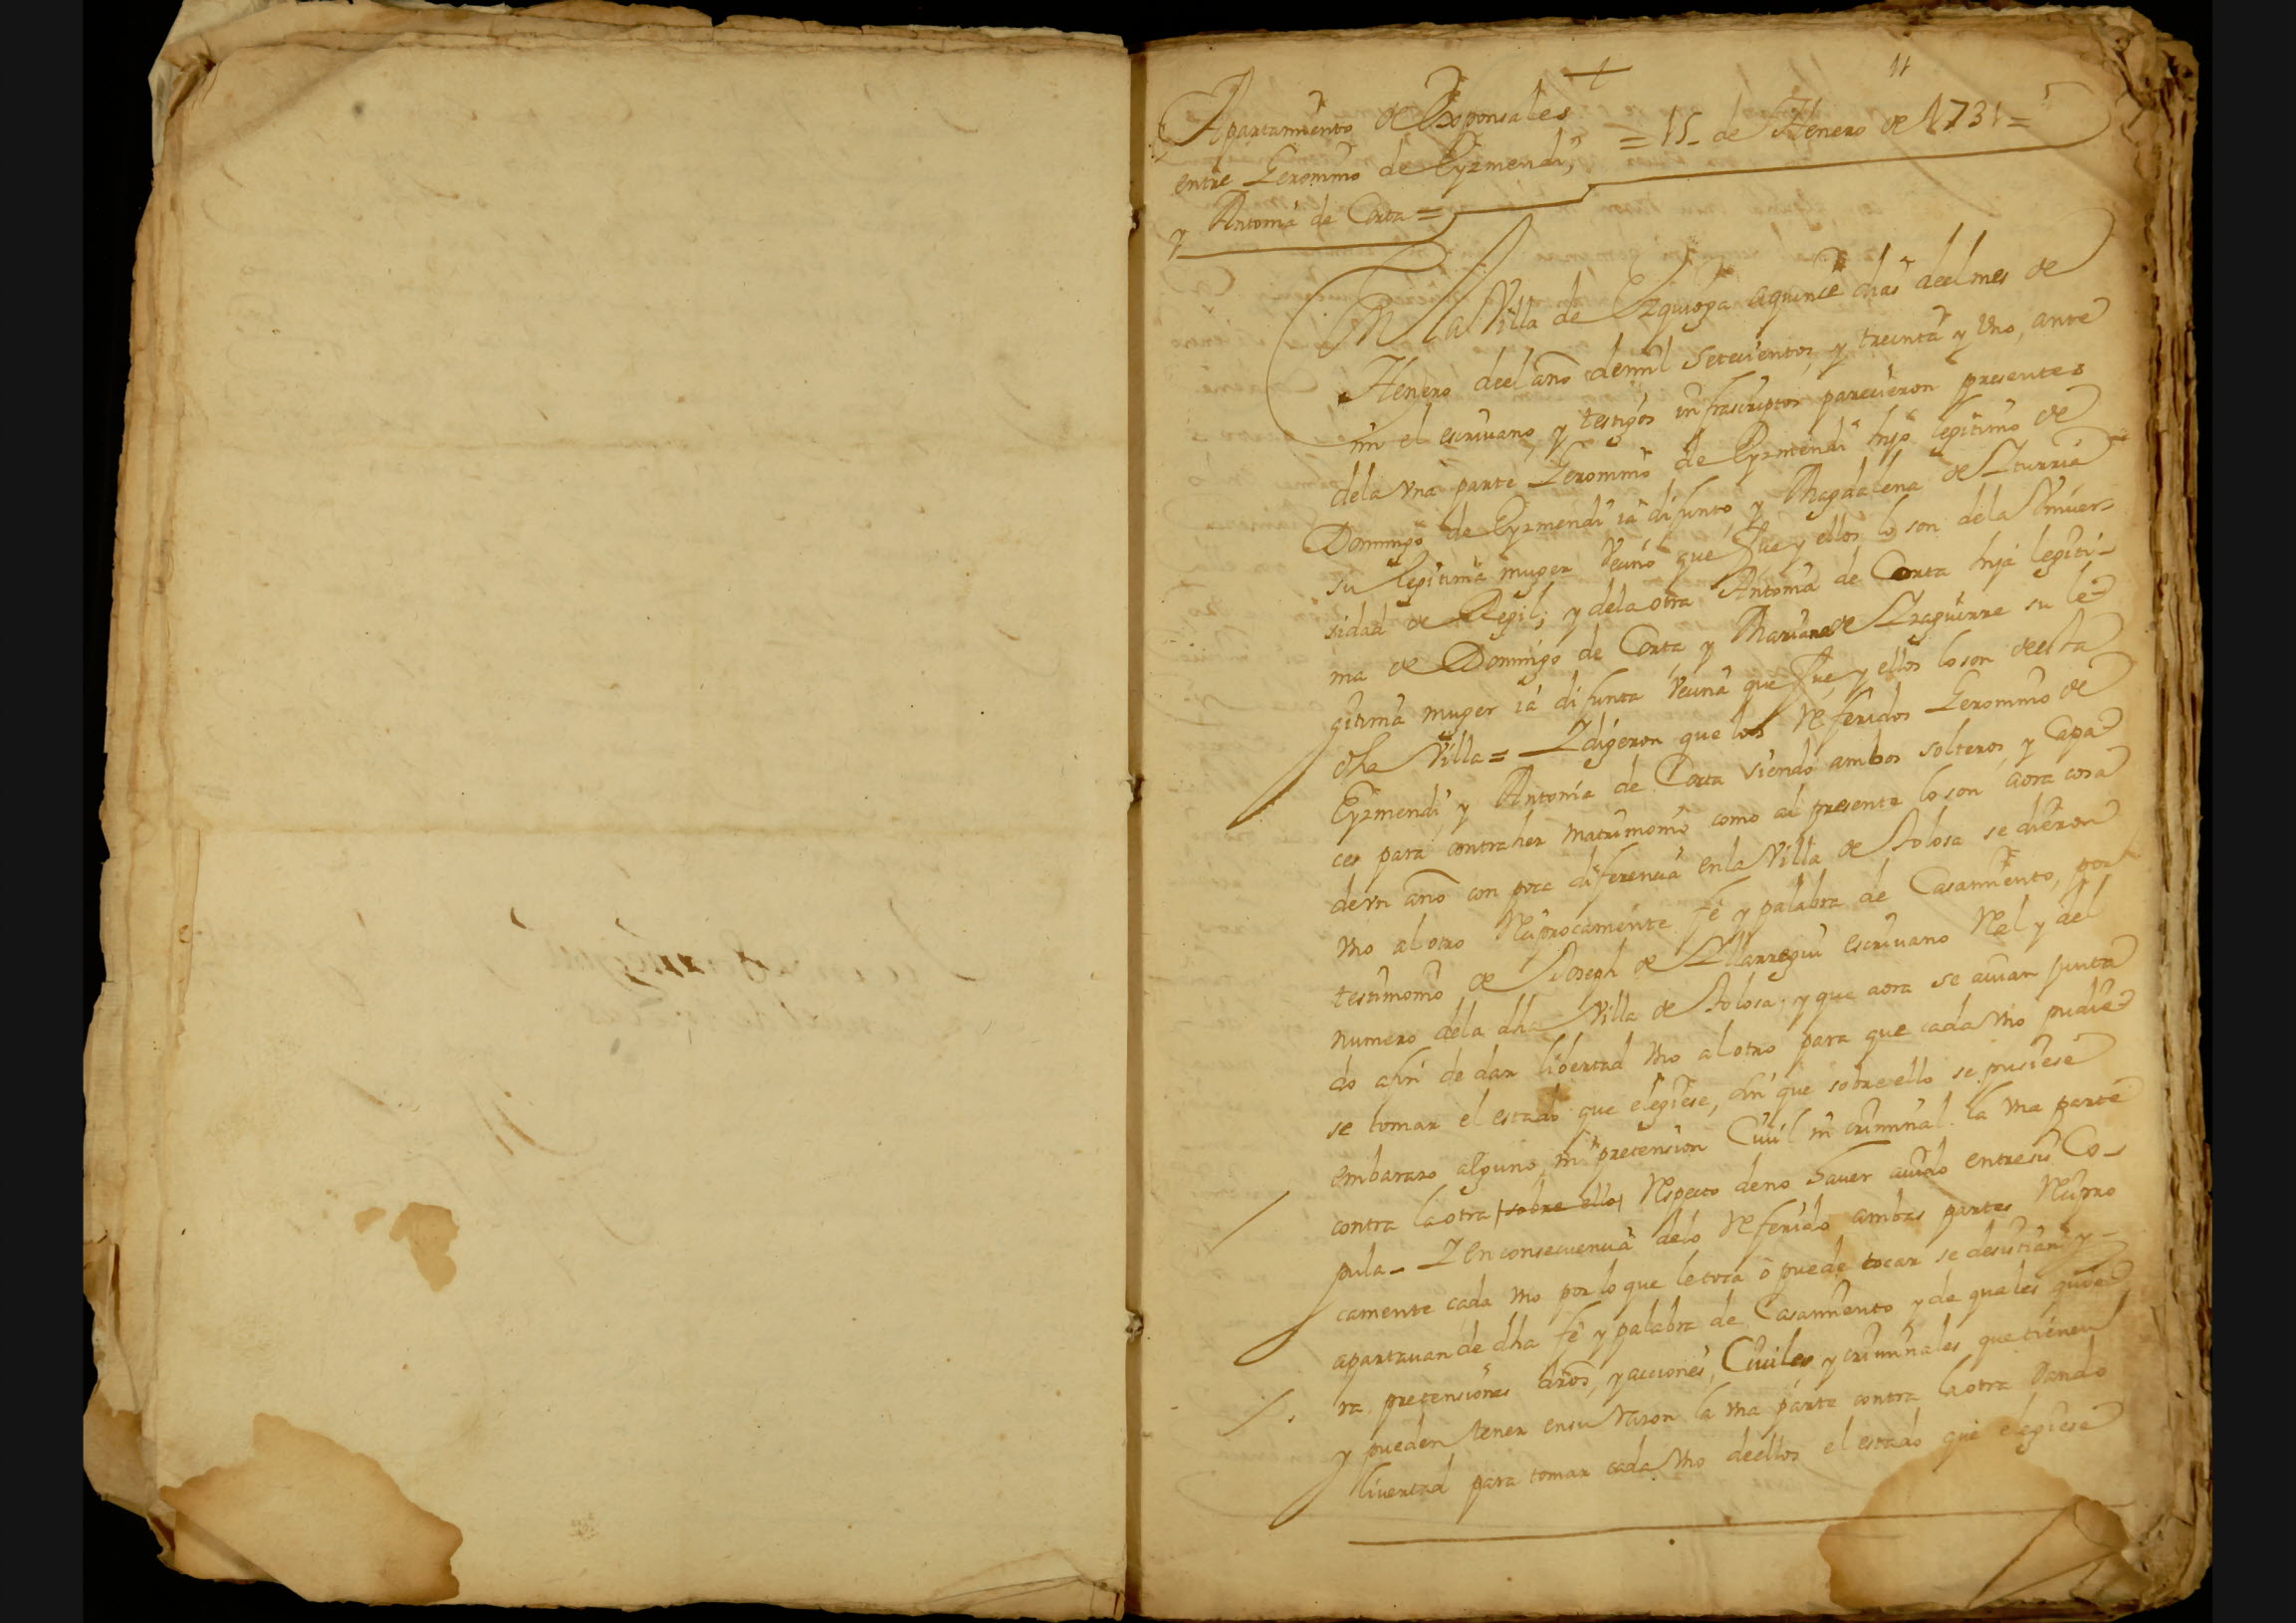 +
11
Apartamiento de Exsponsales
= 15 de Henero de 1731 =
entre Geronimo de Eyzmendi,
y Antonia de Corta =
En la Villa de Ezquioga a quince dias deel mes de
Henero deel año demil setecientos, y treinta y Uno, ante
mi el escriuano, y testigos infrascriptos parecieron presentes
dela Vna parte Geronimo de Eyzmendi hijo legitimo de
Domingo de Eyzmendi ia difunto, y Magdalena de Yturria
su legitima muger Vecino que fue y ellos lo son dela Vniver-
sidad de Regil; y dela otra Antonia de Corta hija legiti-
ma de Domingo de Corta y Mariana de Yzaguirre su le-
gitima muger ia difunta Vecina que fue, y ellos lo son deesta
dha Villa = Y digeron que los referidos Geronimo de
Eyzmendi, y Antonia de Corta siendo ambos solteros, y Capa-
ces para contraher matrimonio como al presente lo son aora cosa
de vn año con poca diferencia en la Villa de Tolosa se dieron
Vno al otro Reciprocamente fe y palabra de Casamiento, por
testimonio de Joseph de Yllarregui escriuano Rel y del
numero dela dha Villa de Tolosa; y que aora se auian junta
do afin de dar libertad Vno al otro para que cada Vno pudie-
se tomar el estado que elegiese, sin que sobre ello se pusiese
embarazo alguno, ni pretension Ciuil ni criminal la Vna parte
contra la otra sobre ello Respecto de no hauer auido entre si Co-
pula - Y en consecuencia delo referido ambas partes Recipro
camente cada Vno por lo que le toca o puede tocar se desistian y -
apartauan de dha fe y palabra de Casamiento y de quales quie-
ra pretensiones dros, y acciones, Ciuiles, y criminales que tienen
y pueden tener en su razon la Vna parte contra la otra Dando
liuertad para tomar cada Vno deellos el estado que elegiese